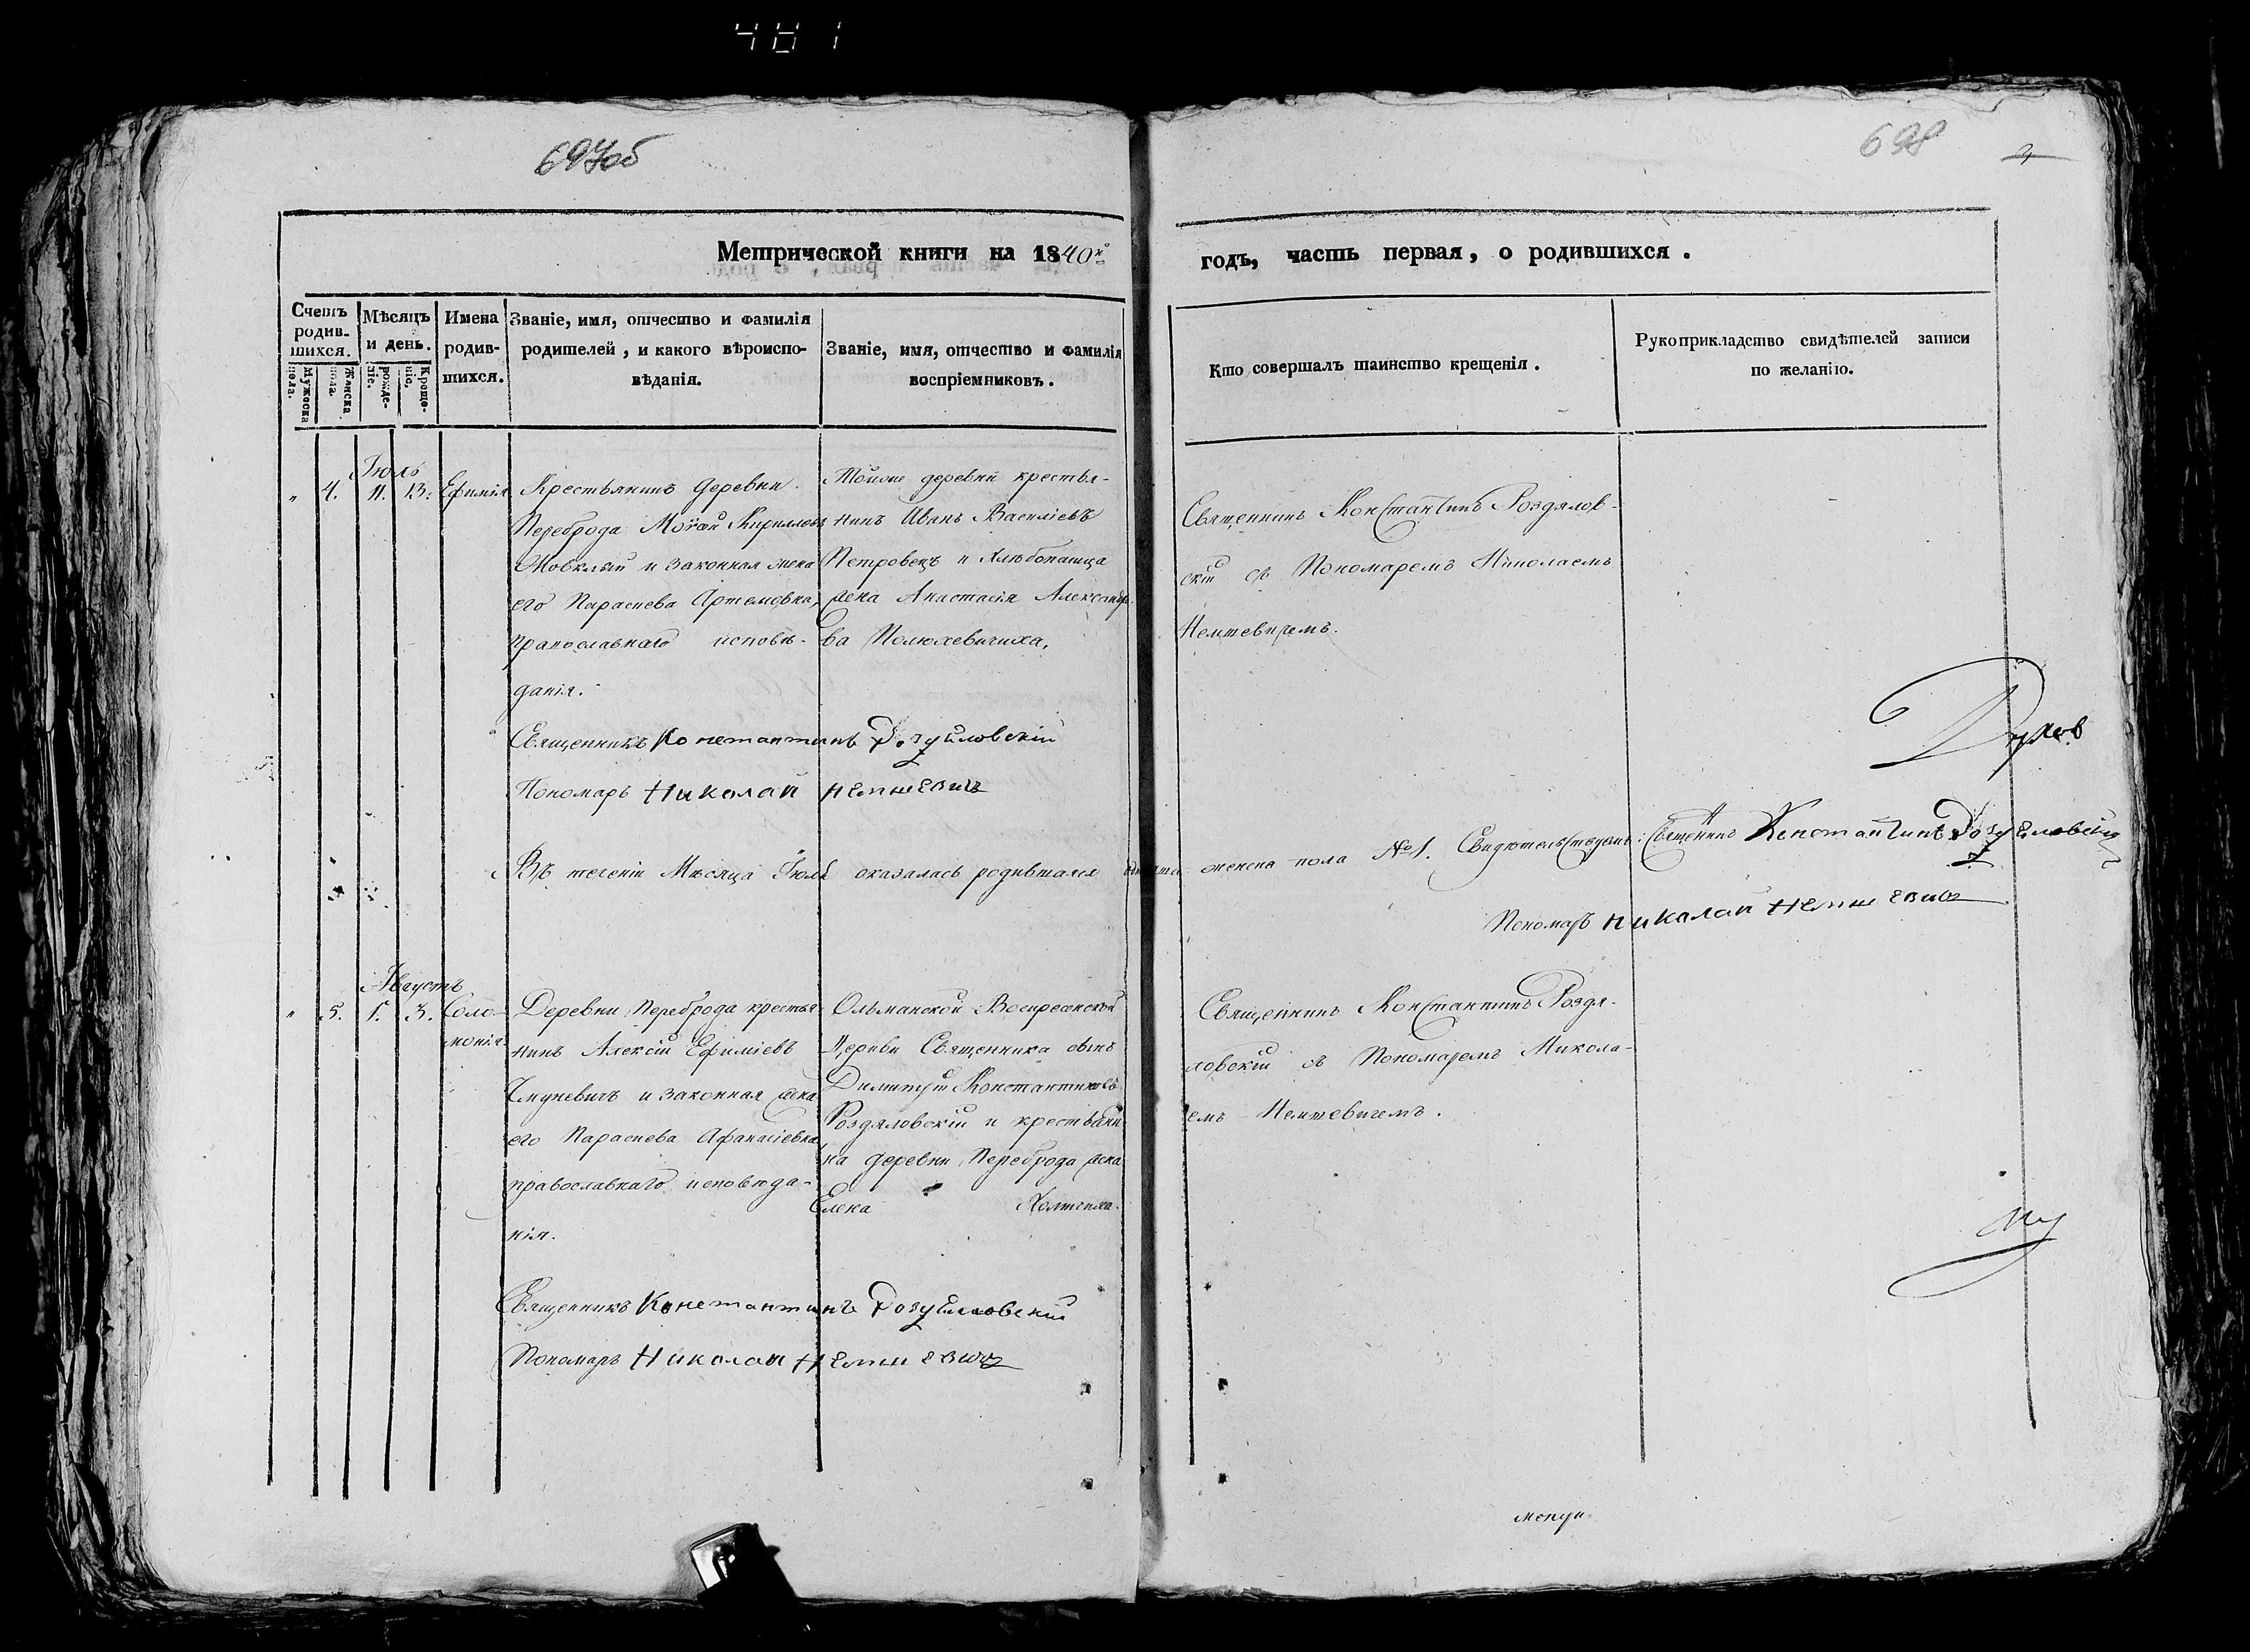 481
697об
698
Метрической книги на 1840й
годъ, часть первая, о родившихся.
Счетъ родив-шихся.
Мужеска пола.
Женска пола.
Мѣсяцъ и день.
рожде-ніе.
Креще-ніе.
Имена родив-шихся.
Званіе, имя, отчество и фамилія
родителей, и какого вѣроиспо-
вѣданія.
Званіе, имя, отчество и фамилія
воспріемниковъ.
Кто совершалъ таинство крещенія.
Рукоприкладство свидѣтелей записи
по желанію.
Іюль
" 4. 11. 13. Ефимія
Крестьянинъ деревни
Переброда Кирилловъ
и законная жена
его Параскева Артемовна,
православнаго исповѣ-
данія.
Тойже деревни крестья-
нинъ Иванъ Василіевъ
Петровецъ и хлѣбопашца
жена Анастасія Александро-
ва Полюхевичиха.
Священникъ Константинъ Роздялов-
скій съ Пономаремъ Николаемъ
Немшевичемъ.
Священникъ Константинъ Роздяловскій
Пономарь Николай Немшевичъ
Въ теченіи Мѣсяца Іюля оказалась родившаяся
женска пола № 1. Свидѣтельствуемъ: Священникъ Константинъ Роздяловскій
Пономарь Николай Немшевичъ
Августъ
" 5. 1. 3. Соло-
монія.
Деревни Переброда крестья-
нинъ Алексій Ефиміевъ
и законная жена
его Параскева Афанасіевна
православнаго исповѣда-
нія.
Ольманской Воскресенской
Церкви Священника сынъ
Димитрій Константиновъ
Роздяловскій и крестьяни-
на деревни Переброда жена
Елена
Священникъ Константинъ Роздя-
ловскій съ Пономаремъ Никола-
емъ Немшевичемъ.
Священникъ Константинъ Роздяловскій
Пономарь Николай Немшевичъ